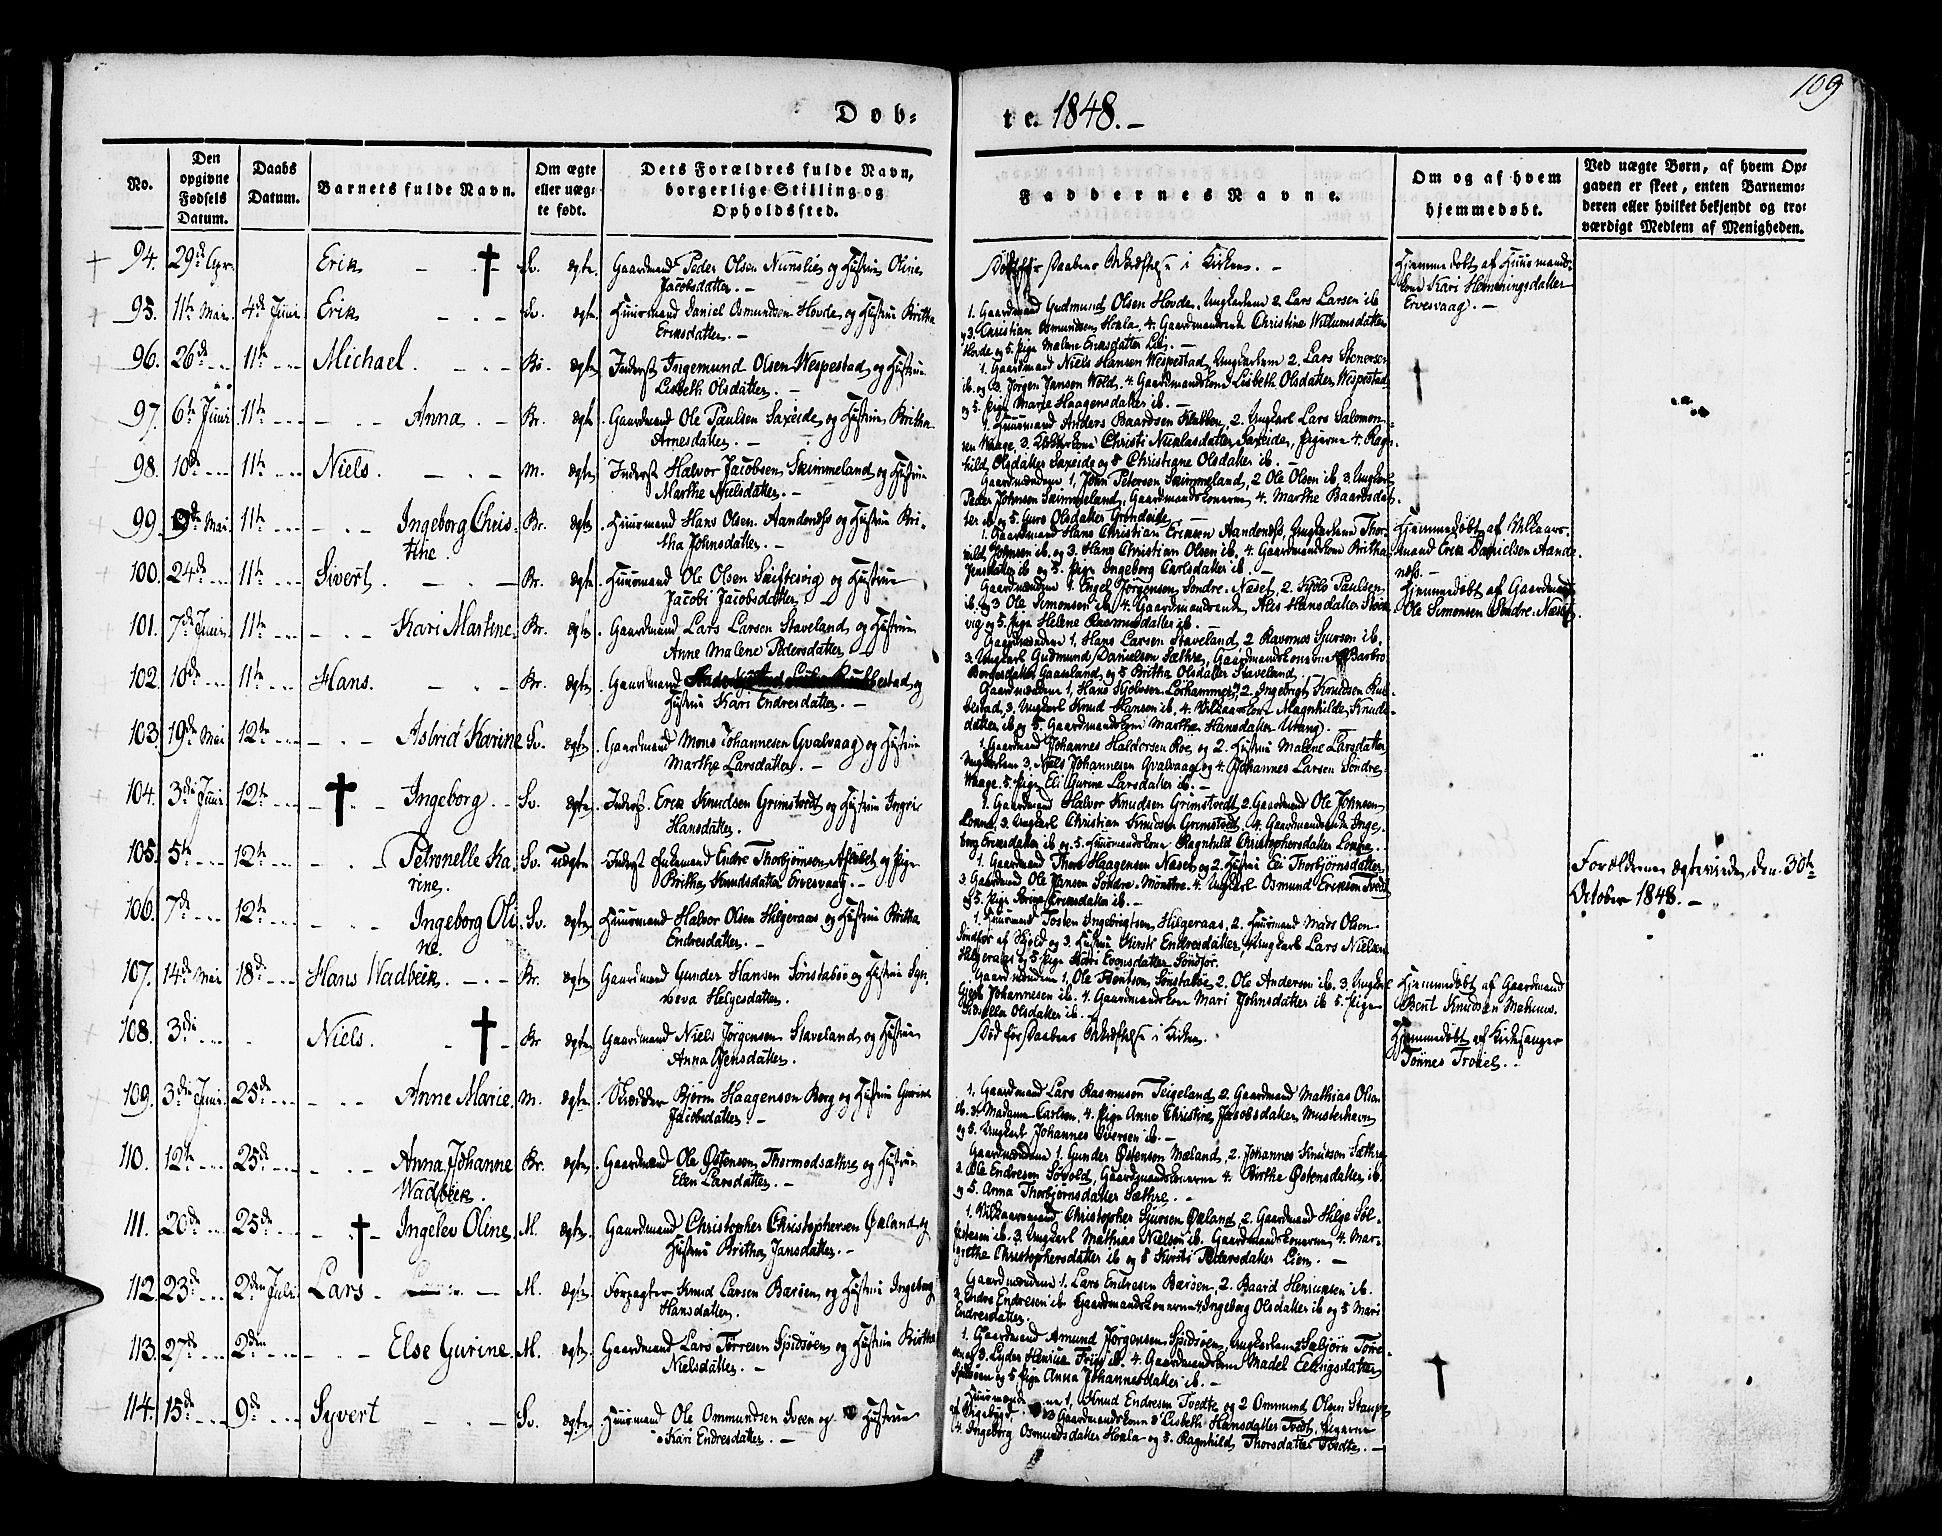 109
Døb- te. 1848. –
No.
Den opgivne Fødsels Datum.
Daabs Datum.
Barnets fulde Navn.
Om ægte eller uæg- te født.
Dets Forældres fulde Navn, borgerlige Stilling og Opholdssted.
Faddernes Navne.
Om og af hvem hjemmedøbt.
Ved uægte Børn, af hvem Op- gaven er skeet, enten Barnemo- deren eller hvilket bekjendt og tro- værdigt Medlem af Menigheden.
94. 29de Apr. Erik Sv. ægte. Gaardmand Peder Olsen Nunslie og Hustrue Oline
Jacobsdatter. –
Død før Daabens Bekræftelse i Kirken. –
Hjemmedøbt af Huusmands-
kone Kari Henningsdatter
Ervesvaag. –
95. 11te Mai 4de Juni Erik Sv. ægte. Huusmand Daniel Osmundsen Hovde og Hustrue Britha
Eriksdatter. –
1. Gaardmand Gudmund Olsen Hovde, Ungkarlene 2. Lars Larsen ib.
og 3. Christian Osmundsen Hoxla, 4. Gaardmandskone Christine Willumsdatter
Hovde og 5. Pige Malene Eriksdatter
96. 26de 11te Michael. Br. ægte. Inderst Ingemund Olsen Wespestad og Hustrue
Lisbeth Olsdatter. –
1. Gaardmand Niels Hansen Wespestad, Ungkarlene 2. Lars Stenersen
ib. og 3. Jørgen Jansen Wold, 4. Gaardmandskone Lisbeth Olsdatter Wespestad
og 5. Pige Marie Haagensdatter ib. –
97. 6te Juni 11te Anna Br. ægte. Gaardmand Ole Paulsen Saxeide og Hustrue Britha
Arnesdatter. –
1. Huusmand Anders Baardsen Klubben, 2. Ungkarl Lars Salomon-
sen Waage, 3. Christi Nicolasdatter Saxeide, Pigerne 4. Rag-
hild Olsdatter Saxeide og 5 Christiane Olsdatter ib. –
98. 10de 11te Niels. M. ægte. Inderst Halvor Jacobsen Skimmeland og Hustrue
Marthe Nielsdatter. –
Gaardmændene 1, John Petersen Skimmeland, 2 Ole Olsen ib, 3. Ungkarl
Peder Johnsen Skimmeland, Gaardmandskonerne 4. Marthe Baardsdat-
ter ib og 5. Guro Olsdatter Grindeide. –
99. 9de Mai 11te Ingeborg Chris-
tine. Br. ægte. Huusmand Hans Olsen Aandenæss og Hustrue Bri-
tha Johnsdatter. –
1. Gaardmand Hans Christian Eriksen Aandenæss, Ungkarlene Thor-
kild Johnsen ib. og 3. Hans Christian Olsen ib. 4. Gaardmandskone Britha
Jensdatter ib og 5. Pige Ingeborg Carlsdatter ib. –
Hjemmedøbt af Vilkaars-
mand Erik Danielsen Aande-
næss. –
100. 24de 11te Sivert. Br. ægte. Huusmand Ole Olsen Skiftesvig og Hustrue
Jacobi Jacobsdatter –
Gaardmændene 1. Engel Jørgensen Søndre-Næset, 2. Paulsen
ib. og 3 Ole Simonsen ib. 4. Gaardmandskone Hansdatter
vig og 5. Pige Helene Rasmusdatter ib. –
Hjemmedøbt af Gaardmand
Ole Simonsen Søndre-Næset.
101. 7de Juni 11te Kari Martine. Br. ægte. Gaardmand Lars Larsen Staveland og Hustrue
Anne Malene Pedersdatter. –
Gaardmændene 1, Hans Larsen Staveland, 2. Rasmus Sjursen ib.
3. Ungkarl Gudmund Danielsen Sæthre, Gaardmandskonerne 4. Barbro
Gaasland, og 5 Britha Olsdatter Staveland.
102. 10de 11te Hans. Br. ægte. Gaardmand bestad og
Hustrue Kari Endresdatter. –
Gaardmændene 1, Hans Lorhammer, 2. Ingebrigt Knudsen Rub-
bestad, 3. Ungkarl Knud Hansen ib. 4. Vilkaarskone Magnhilde Knuds-
datter ib og 5. Gaardmandskone Marthe Hansdatter Urang.
103. 19de Mai 12te Astrid Karine Sv. ægte. Gaardmand Mons Johannesen Gvalvaag og Hustrue
Marthe Larsdatter. –
1. Gaardmand Johannes Haldorsen Roe og 2. Hustrue Malene Larsdatter
Ungkarlene 3. Niels Johannesen Gvalvaag og 4. Johannes Larsen Søndre-
Waage. 5. Pige Eli Gurine Larsdatter ib. –
104. 3die Juni 12te Ingeborg Sv. ægte. Inderst Erik Knudsen Grimstvedt og Hustrue Ingri
Hansdatter.
1. Gaardmand Halvor Knudsen Grimstvedt, 2. Gaardmand Ole Johnsen
Lonne, 3. Ungkarl Christian Knudsen Grimstvedt, 4. Gaardmandskone Inge-
borg Eriksdatter ib og 5. Huusmandskone Ragnhild Christophersdatter
105. 5te 12te Petronelle Ka-
rine. Sv. Uægte. Inderst Enkemand Endre Thorbjørnsen og Pige
Britha Knudsdatter Ervesvaag. –
1. Gaardmand Thore Haagensen Næset og 2. Hustrue Eli Thorbjørnsdatter
3. Gaardmand Ole Jansen Søndre-Mønstre. 4. Ungkarl Osmund Eriksen Tvedt
og 5. Pige Serina Eriksdatter ib. –
Forældrene ægteviede den 30te
October 1848. –
106. 7de 12te Ingeborg Oli-
ne. Sv. ægte. Huusmand Halvor Olsen Helgeraas og Hustrue Britha
Endresdatter. –
1. Huusmand Tosten Ingebrigtsen Helgeraas, 2. Huusmand Mads Olsen
Søndfør af Skjold og 3. Hustrue Kirsti Endresdatter, 4. Ungkarl Lars Nielsen
Helgeraas og 5 Pige Kari Evensdatter Søndfør.
107. 14de Mai 18de Hans Wadbeck. Br. ægte. Gaardmand Gunder Hansen Sønstabøe og Hustrue Syn-
neva Helgesdatter.
Gaardmændene 1, Ole Sønstabøe, 2. Ole Andersen ib. 3. Ungkarl
Johannesen ib. 4. Gaardmandskone Mari Johnsdatter ib 5. Pige
Olsdatter ib. –
Hjemmedøbt af Gaardmand
Bent Knudsen Mæhuus.
108. 3die Niels. Br ægte. Gaardmand Niels Jørgensen Staveland og Hustrue
Anna Jensdatter.
Død før Daabens Bekræftelse i Kirken.
Hjemmedøbt af Kirkesanger
Tønnes Troiel.
109. 3die Juni. 25de Anne Marie. M. ægte. Skrædder Bjørn Haagensen Borg og Hustrue Gurine
Jacobsdatter. –
1. Gaardmand Lars Rasmusen Teigeland, 2. Gaardmand Mathias Olsen
ib. 3. Madame Carlsen, 4. Pige Anne Christine Jacobsdatter Mosterhavn
og 5. Ungkarl Johannes Iversen ib. –
110. 12te 25de Anna Johanne
Wadbeck. Br. ægte. Gaardmand Ole Østensen Thormodsæthre og Hustrue
Elen Larsdatter. –
Gaardmændene 1. Gunder Østensen Mæland, 2. Johannes Knudsen Sæthre
3. Ole Endresen Søvold, Gaardmandskonerne 4. Birthe Østensdatter ib.
og 5. Anna Thorbjørnsdatter Sæthre. –
111. 20de 25de Ingelev Oline. M. ægte. Gaardmand Christopher Christophersen Øxland og
Hustrue Britha Jansdatter. –
1. Vilkaarsmand Christopher Sjursen Øxland, 2. Gaardmand Helge Søl-
festesen ib. 3. Ungkarl Mathias Nielsen ib. Gaardmandskonerne 4. Mar-
grethe Christophersdatter ib og 5 Kirsti Petersdatter Liem. –
112. 23de 2den Juli. Lars M. ægte. Forpagter Knud Larsen Børøen og Hustrue Ingeborg
Hansdatter. –
Gaardmændene 1. Lars Endresen Børøen, 2. Baard Henriksen ib.
3. Endre Endresen ib. Gaardmandskonerne 4 Ingeborg Olsdatter ib og 5 Mari
Endresdatter.
113. 27de 2den Else Gurine. M. ægte. Gaardmand Lars Tørresen Spidsøen og Hustrue Britha
Nielsdatter. –
1. Gaardmand Amund Jørgensen Spidsøen, Ungkarlene 2 Sæbjørn Tørre-
sen og 3. Lyder Henrik Friis ib. 4. Gaardmandskone Madel Ellingsdatter
Spidsøen og 5 Pige Anna Johannesdatter ib. –
114. 15de 9de Syvert Sv. ægte. Huusmand Ole Ommundsen Sveen og Hustrue
Kari Endresdatter. –
Huusmændene 1, Knud Endresen Tvedte og 2 Ommund Olsen
3 Gaardmandskone Lisbeth Hansdatter Tvedt, Pigerne
4. Ingeborg Osmundsdatter Hoxla og 5. Ragnhild Thorsdatter Tvedte. –